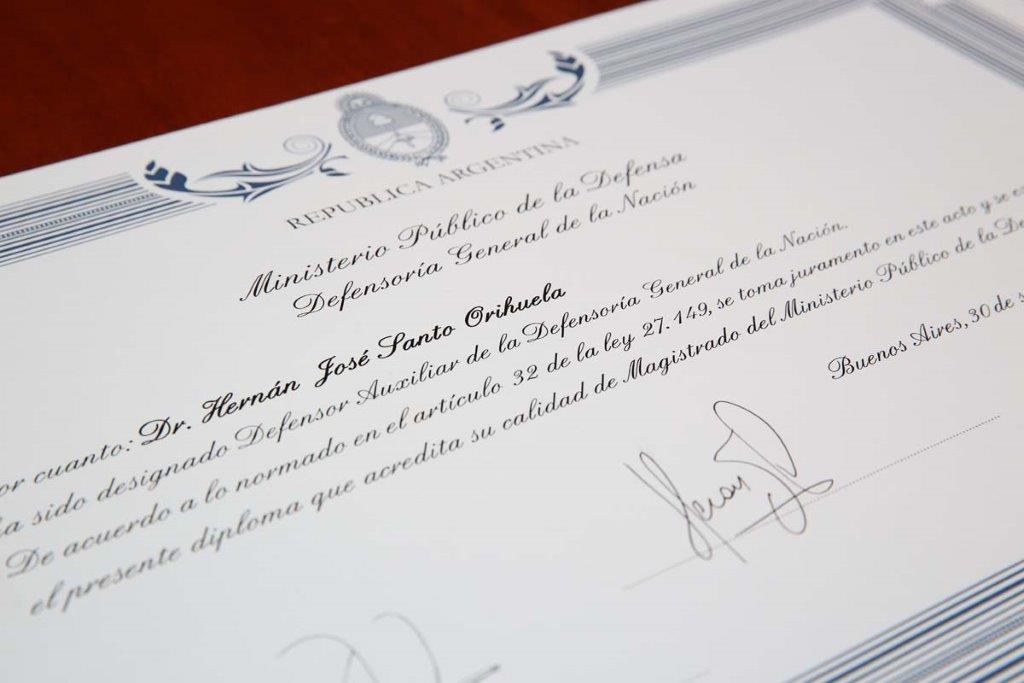 REPUBLICA ARGENTINA
Ministerio Público de la Defensa
Defensoría General de la Nación
or cuanto: Dr. Hernán José Santo Orihuela
a sido designado Defensor Auxiliar de la Defensoría General de la Nación.
De acuerdo a lo normado en el artículo 32 de la ley 27.149, se toma juramento en este acto y se
el presente diploma que acredita su calidad de Magistrado del Ministerio Público de la De
Buenos Aires, 30 de s